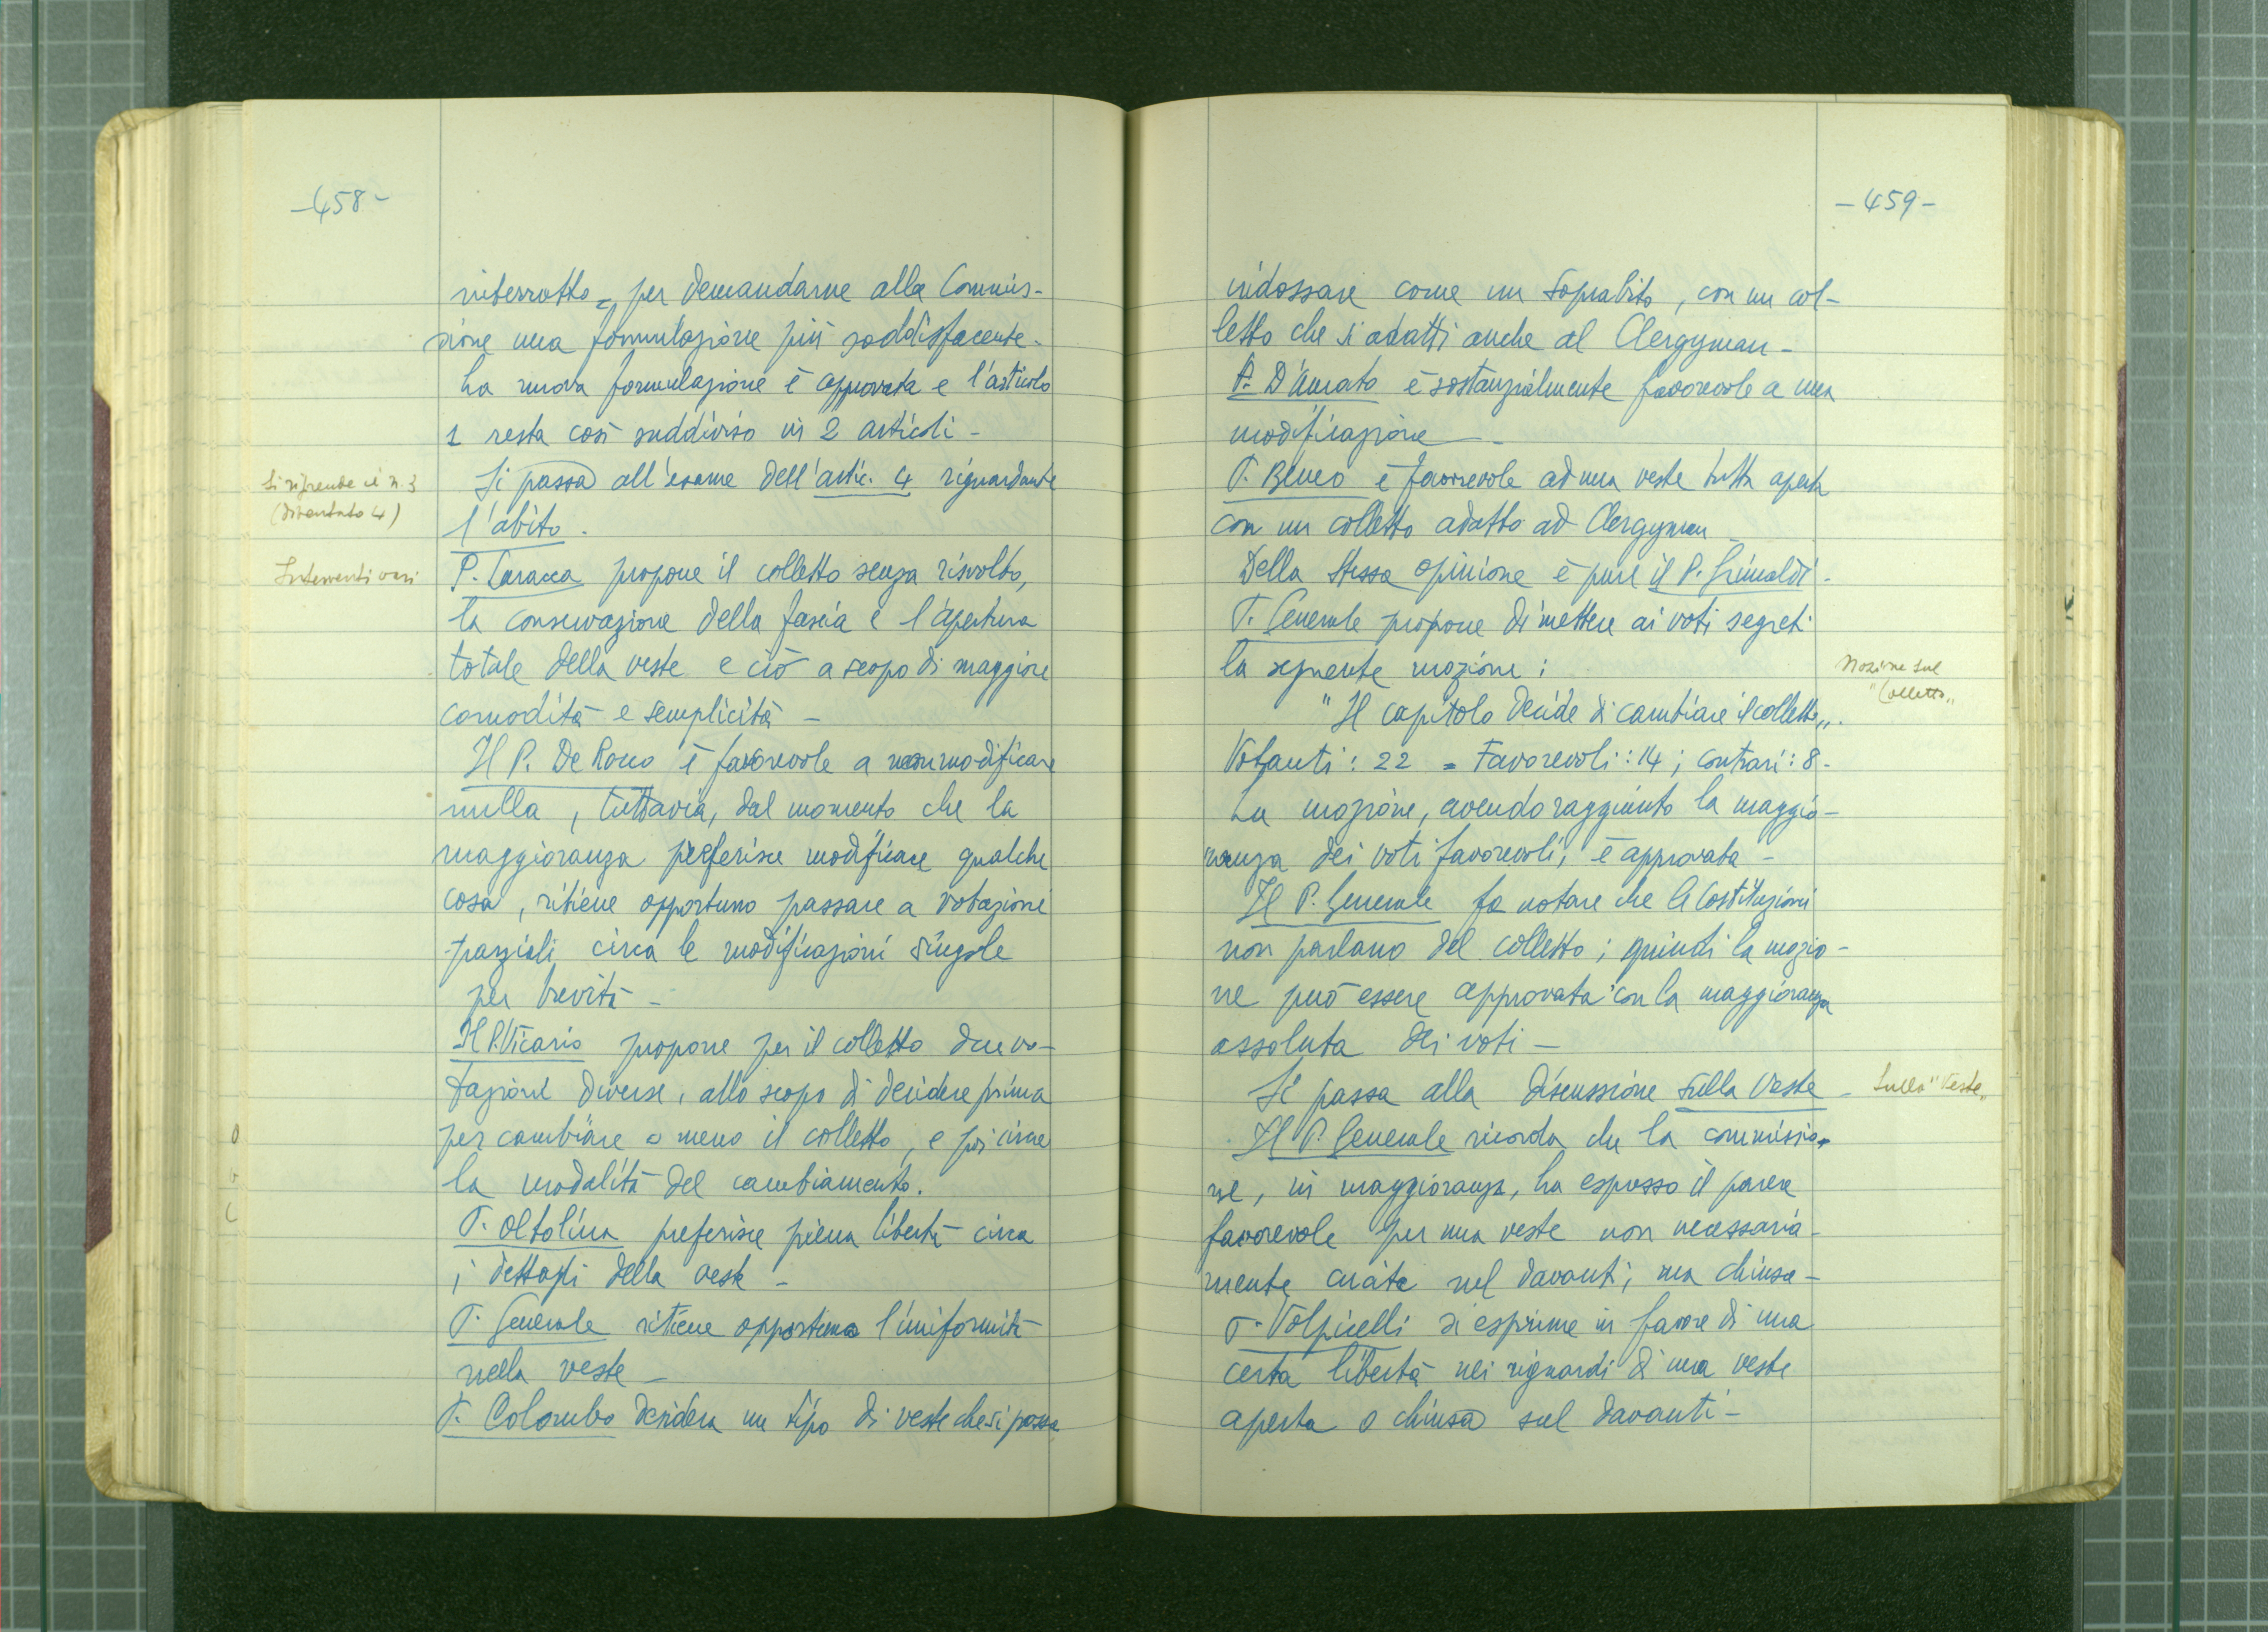 -458-
interrotto = per demandarne alla Commis-
sione una formulazione più soddisfacente -
La nuova formulazione è approvata e l'articolo
1 resta così suddiviso in 2 articoli -
Si riprende il n. 3
(diventato 4)
Si passa all'esame dell'artic. 4 riguardante
l'abito.
Interventi vari
P. Caracca propone il colletto senza risvolto,
la conservazione della fascia e l'apertura
totale della veste e ciò a scopo di maggiore
comodità e semplicità -
Il P. De Rocco è favorevole a non modificare
nulla, tuttavia, dal momento che la
maggioranza preferisce modificare qualche
cosa, ritiene opportuno passare a votazioni
parziali circa le modificazioni singole
per brevità -
Il P. Vicario propone per il colletto due vo-
tazioni diverse, allo scopo di decidere prima
per cambiare o meno il colletto, e poi circa
la modalità del cambiamento.
P. Oltolina preferisce piena libertà circa
i dettagli della veste -
P. Generale ritiene opportuna l'uniformità
nella veste -
P. Colombo desidera un tipo di veste che si possa
-459-
indossare come un soprabito, con un col-
letto che si adatti anche al Clergyman -
P. D'Amato è sostanzialmente favorevole a una
modificazione -
P. Beneo è favorevole ad una veste tutta aperta
con un colletto adatto ad Clergyman -
Della stessa opinione è pure il P. Grimaldi -
P. Generale propone di mettere ai voti segreti
la seguente mozione:
Mozione sul
"Colletto"
"Il capitolo decide di cambiare il colletto".
Votanti: 22 = Favorevoli: 14; contrari: 8 -
La mozione, avendo raggiunto la maggio-
ranza dei voti favorevoli, è approvata -
Il P. Generale fa notare che le Costituzioni
non parlano del colletto; quindi la mozio-
ne può essere approvata con la maggioranza
assoluta dei voti -
Si passa alla discussione sulla Veste -
Sulla "Veste"
Il P. Generale ricorda che la commissio-
ne, in maggioranza, ha espresso il parere
favorevole per una veste non necessaria-
mente cucita nel davanti, ma chiusa -
P. Volpicelli si esprime in favore di una
certa libertà nei riguardi di una veste
aperta o chiusa sul davanti -